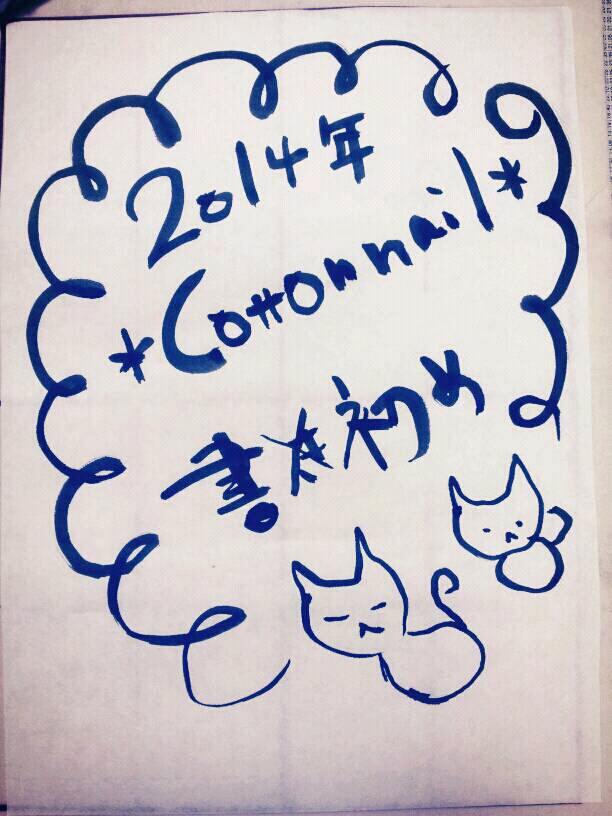 2014年
*Cottonnail*
書き初め